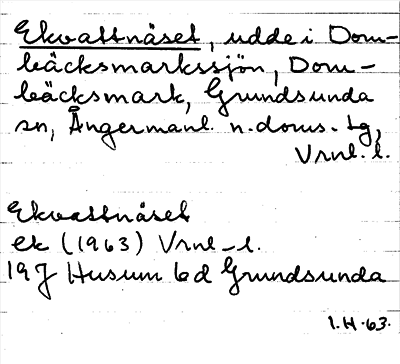 Ekvattnäset, udde i Dom-
bäcksmarkssjön, Dom-
bäcksmark, Grundsunda
sn, Ångermanl. n. doms. tg,
Vrnl. l.
Ekvattnäset
ek (1963) Vrnl. l.
19J Husum 6d Grundsunda
1.H.63.